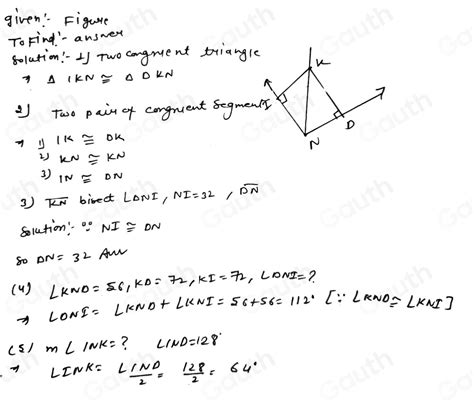 given:- Figure
To Find:- answer
Solution:- 1) Two congruent triangle
→ Δ IKN ≅ Δ DKN
2) Two pair of congruent Segment
→ 1) IK ≅ DK
2) KN ≅ KN
3) IN ≅ DN
3) KN bisect ∠DNI, NI=32, DN
Solution:- ∵ NI ≅ DN
So DN= 32 Ans
(4) ∠KND= 56, KD= 72, KI= 72, ∠DNI=?
→ ∠DNI= ∠KND+ ∠KNI= 56+56= 112° [∵ ∠KND≅ ∠KNI]
(5) m∠INK=? ∠IND=128°
→ ∠INK= ∠IND/2= 128/2= 64°
K
I
D
N
Gauth